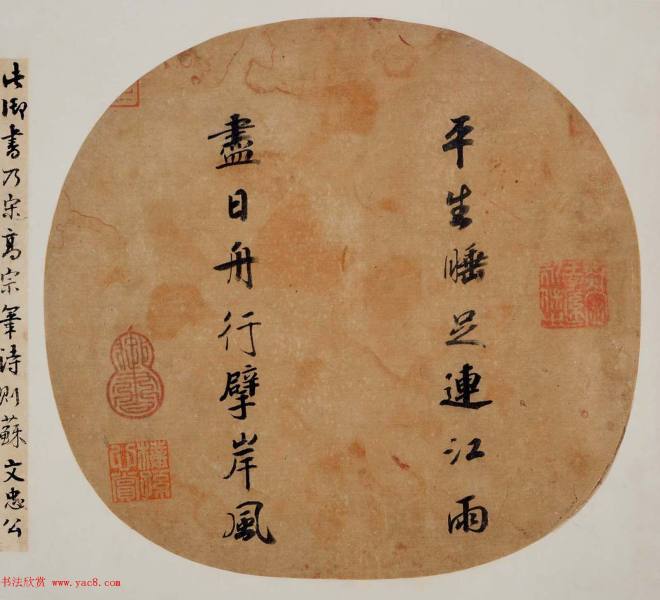 平生睡足連江雨
盡日舟行擘岸風
此御書乃宋高宗筆詩則蘇文忠公
御書
书法欣赏 www.yac8.com